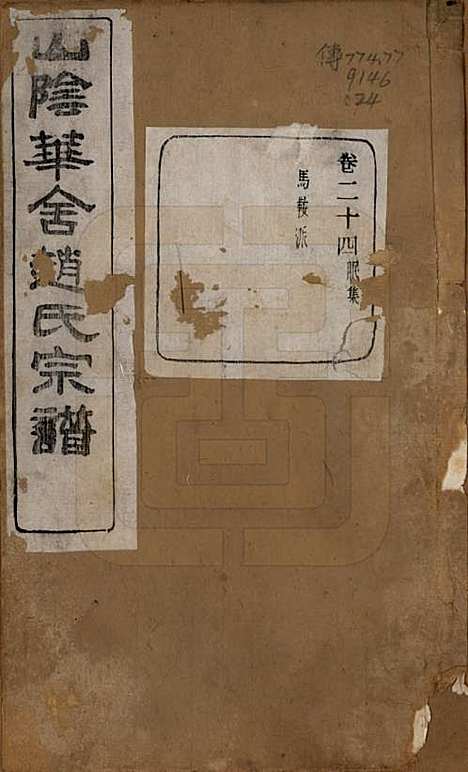 山陰華舍趙氏宗譜
卷二十四昃集
馬鞍派
傳774.77
9146
:24